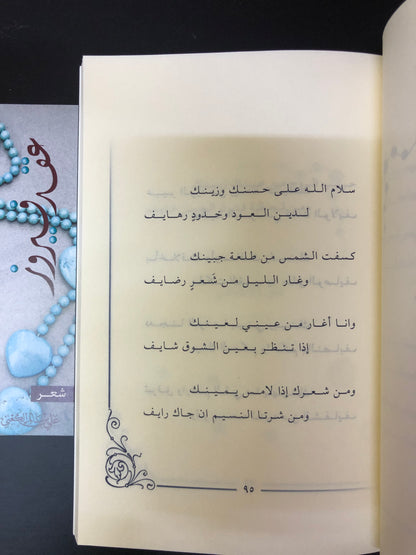 عقد فيروز
شعر
سلام الله على حسنك وزينك
لدين العود وخدودٍ رهايف
كسفت الشمس من طلعة جبينك
وغار الليل من شَعرٍ رضايف
وانا أغار من عيني لعينك
إذا تنظر بعين الشوق شايف
ومن شعرك إذا لامس يمينك
ومن شرتا النسيم ان جاك رايف
٩٥